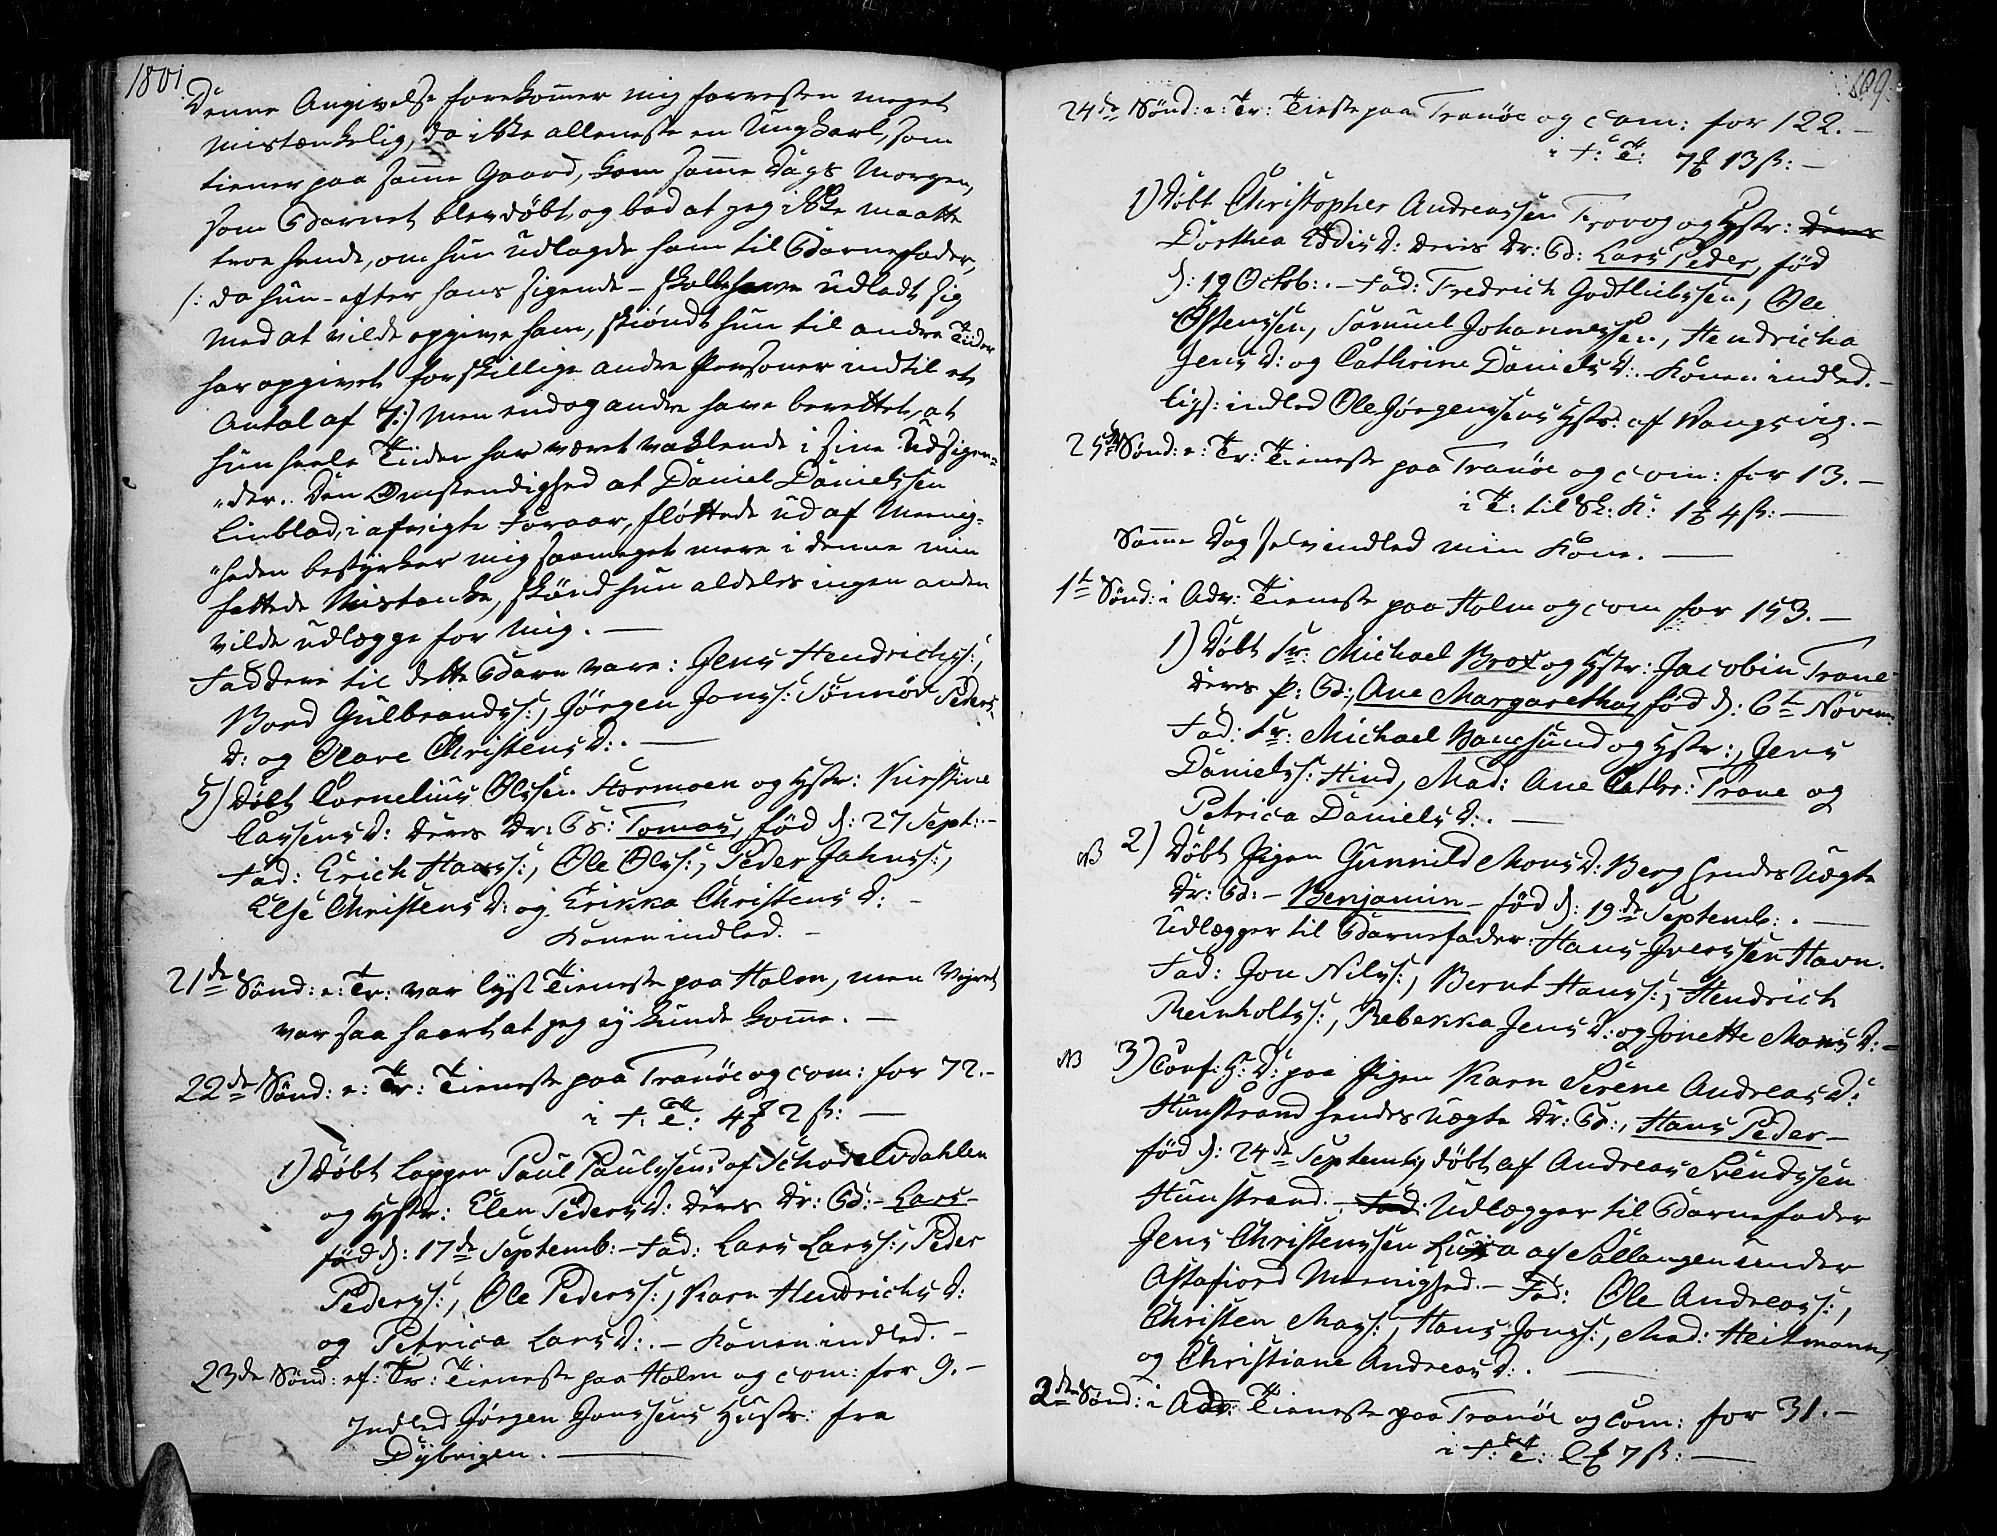 1801.
Denne Angivelse forekommer mig forresten meget
mistænkelig, da ikke alleneste en Ungkarl, som
tiener paa samme Gaard, kom samme Dags Morgen,
som Barnet blev døbt, og bad at jeg ikke maatte
troe hende, om hun udlagde ham til Barnefader,
/: da hun - efter hans sigende - skulle have udladt sig
med at vilde opgive ham, skiøndt hun til andre Tiider
har opgivet forskillige andre Personer indtil et
Antal af 7:/ Men endog andre have berettet, at
hun heele Tiiden har været vaklende i sine Udsigen-
"der. Den Omstendighed at Daniel Danielssen
Linblad, i afvigte Foraar, fløttede ud af Meenig-
"heden bestyrker mig saameget mere i denne min
fattede Mistanke, skønd hun aldeles ingen anden
vilde udlægge for mig. —
Faddere til dette Barn vare: Jens Hendrichs:,
Bord Gulbrands:, Jørgen Jons: Sønnøv Peders
D: og Olave Christens D:. —
5) Døbt Cornelius Olssen Stormoen og Hstr: Kirstine
Cassens D: deres Dr: B: Tomas, fød d: 27 Sept: -
Fad: Erich Hans:, Ole Ols:, Peder Johns:,
Else Christens D: og Erikka Christens D: -
Konen indled. -
21de Sønd: e: Tr: var lyst Tieneste paa Holm, men Vejret
var saa haart at jeg ej kunde komme. —
22de Sønd: e: Tr: Tieneste paa Tranøe og com: for 72. -
i F: T: 4 2 ß: —
1) Døbt Lapper Paul Paulssen af Schoelvdahlen
og Hstr: Elen Peders D: deres Dr: B: - Lars -
fød d: 17de Septemb: - Fad: Lars Lars:, Peder
Peders:, Ole Peders:, Karn Hendrichs D:
og Petrica Lars D:. - Konen indled. -
23de Sønd: ef: Tr: Tieneste paa Holm og com: for 9. -
Indled Jørgen Jonssens Hustr: fra
Dybvigen. —
109.
24de Sønd: e: Tr: Tieneste paa Tranøe og com: for 122. -
i F: T: 7 13 ß: -
1) Døbt Christopher Andreassen Trovog og Hstr: Deres
Dorthea Eddis D: deres Dr: B: Lars Peder, fød
d: 19 Octob:. - Fad: Fredrich Godtliebssen, Ole
Ostenssen, Samuel Johannessen, Hendricha
Jens D: og Cathrine Daniels D:. Konen indled. -
lig: indled Ole Jørgenssens Hstr: af Wangsvig. -
25de Sønd: e: Tr: Tieneste paa Tranøe og com: for 13. -
i T: til Sk: K: 1 4 ß: —
Samme Dag selv indled min Kone. —
1te Sønd: i Adv: Tieneste paa Holm og com for 153. -
1) Døbt Sr: Michael Brox og Hstr: Jacobin Trane
deres P: B:, Ane Margaretha, fød d: 6te Novem:
Fad: Sr: Michael Hansund og Hstr:, Jens
Daniels: Hind, Mad: Ane Cathr: Trane og
Petrica Daniels D:. —
NB 2) Døbt Pigen Gunnild Mons D: Berg hendes Uægte
Dr: B: - Benjamin - fød d: 19de Septemb:. —
Udlægger til Barnefader: Hans Iverssen Havn.
Fad: Jon Nils:, Bernt Hans:, Hendrich
Reinholts:, Rebekka Jens D: og Jonette Mons D: -
NB 3) Conf: H: D: paa Pigen Karn Serene Andreas D:
Hunstrand hendes Uægte Dr: B:, Hans Peder -
fød d: 24de Septemb, døbt af Andreas Svendssen
Hunstrand. Fad: Udlægger til Barnefader
Jens Christenssen af Sallangen under
Astafiord Meenighed. - Fad: Ole Andreas:,
Christen Mags:, Hans Jons:, Mad: Heitmann,
og Christiane Andreas D:. —
2den Sønd: i Adv: Tieneste paa Tranøe og com: for 31. -
i F: T: 7 ß: —